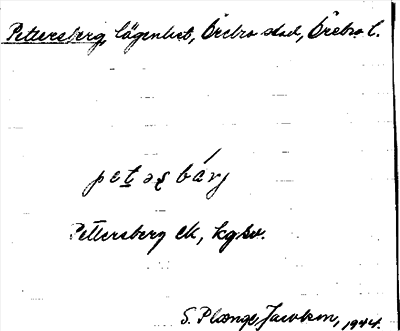 Pettersberg, lägenhet, Örebro stad, Örebro l.
Pettersberg ek, kgbv.
S. Plænge Jacobson, 1944.